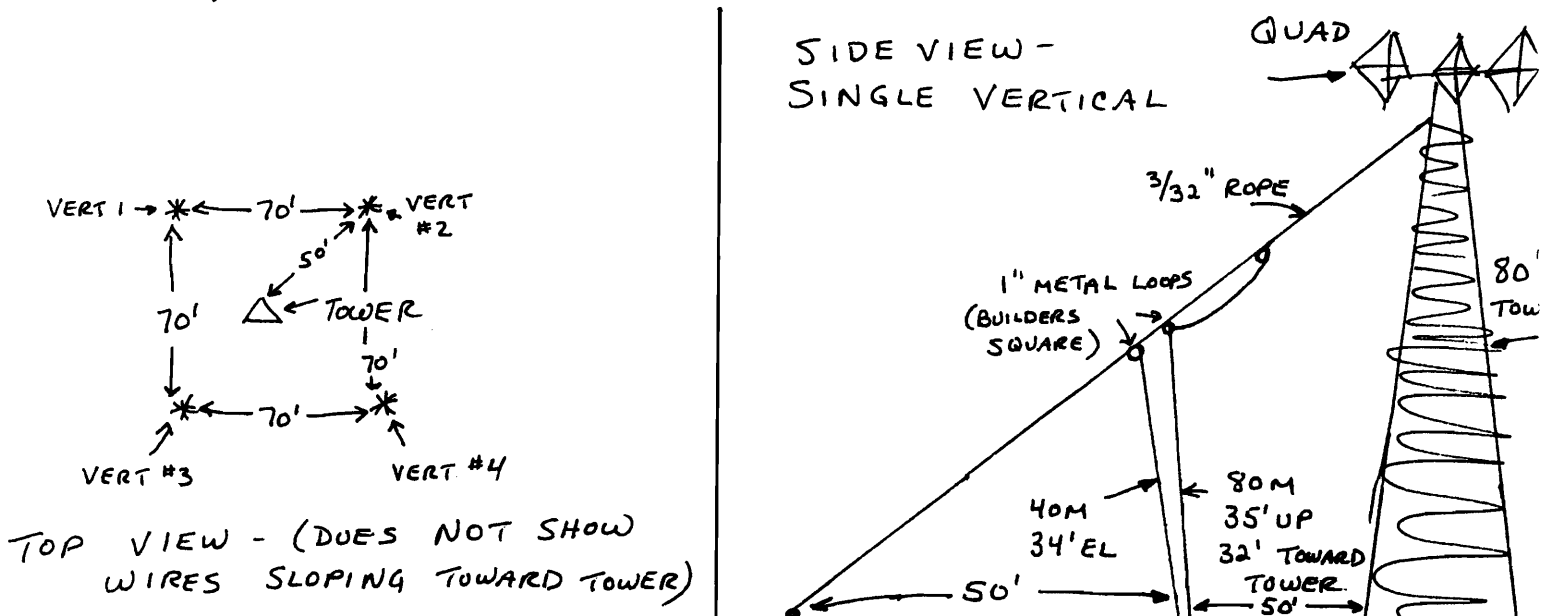 VERT 1
70'
VERT
#2
50'
70'
TOWER
70'
70'
VERT #3
VERT #4
TOP VIEW - (DOES NOT SHOW
WIRES SLOPING TOWARD TOWER)
SIDE VIEW -
SINGLE VERTICAL
QUAD
3/32" ROPE
1" METAL LOOPS
(BUILDERS
SQUARE)
80'
TOW
40M
34' EL
80M
35' UP
32' TOWARD
TOWER.
50'
50'